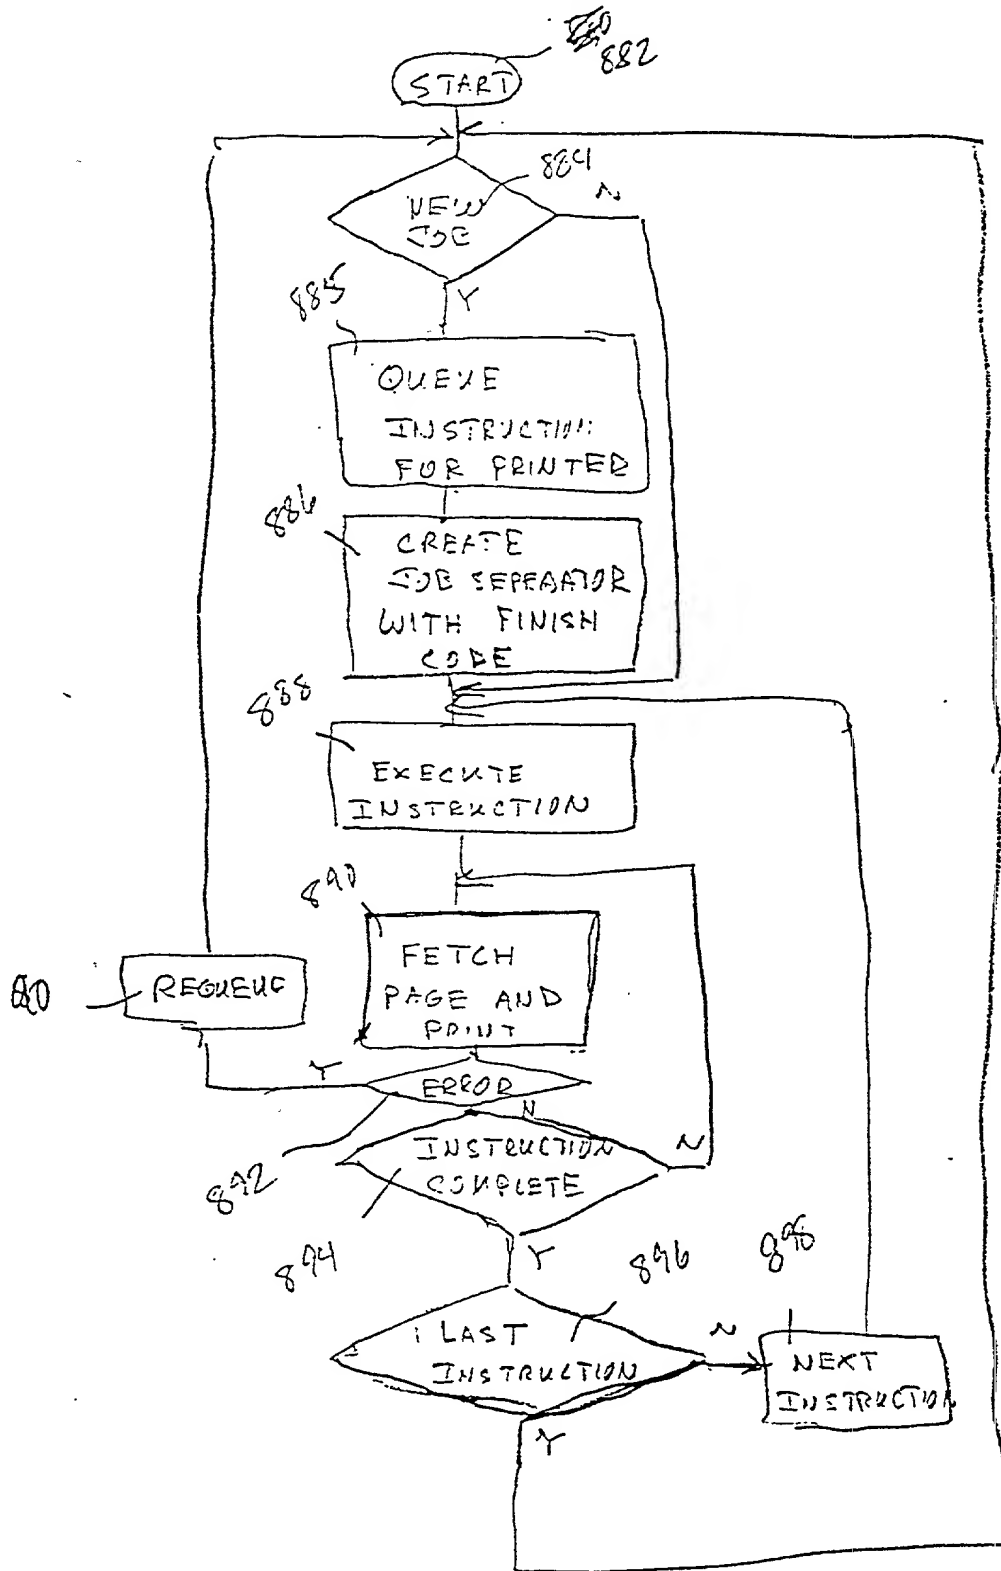 882
START
884
N
NEW
JOB
Y
885
QUEUE
INSTRUCTION
FOR PRINTER
886
CREATE
JOB SEPERATOR
WITH FINISH
CODE
888
EXECUTE
INSTRUCTION
890
FETCH
PAGE AND
PRINT
REQUEUE
Y
ERROR
N
892
INSTRUCTION
COMPLETE
N
Y
894
896
898
LAST
INSTRUCTION
N
NEXT
INSTRUCTION
Y